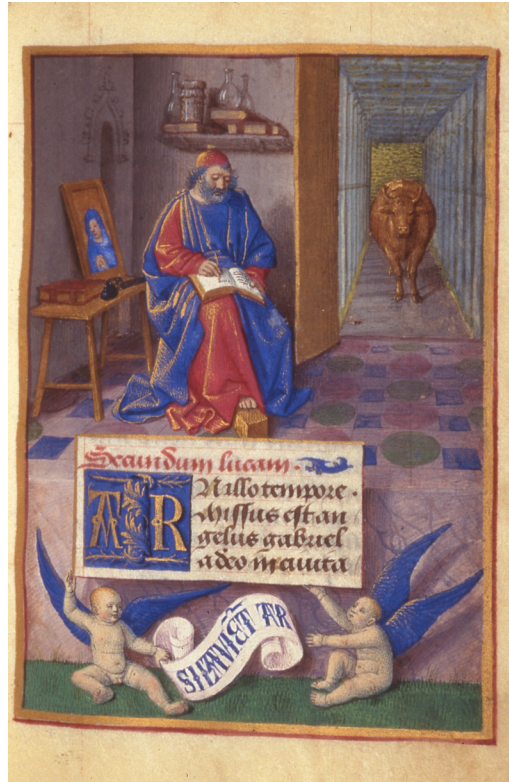 Secundum lucam.
AR
N illo tempore.
Missus est an
gelus gabriel
a deo in ciuita
AR